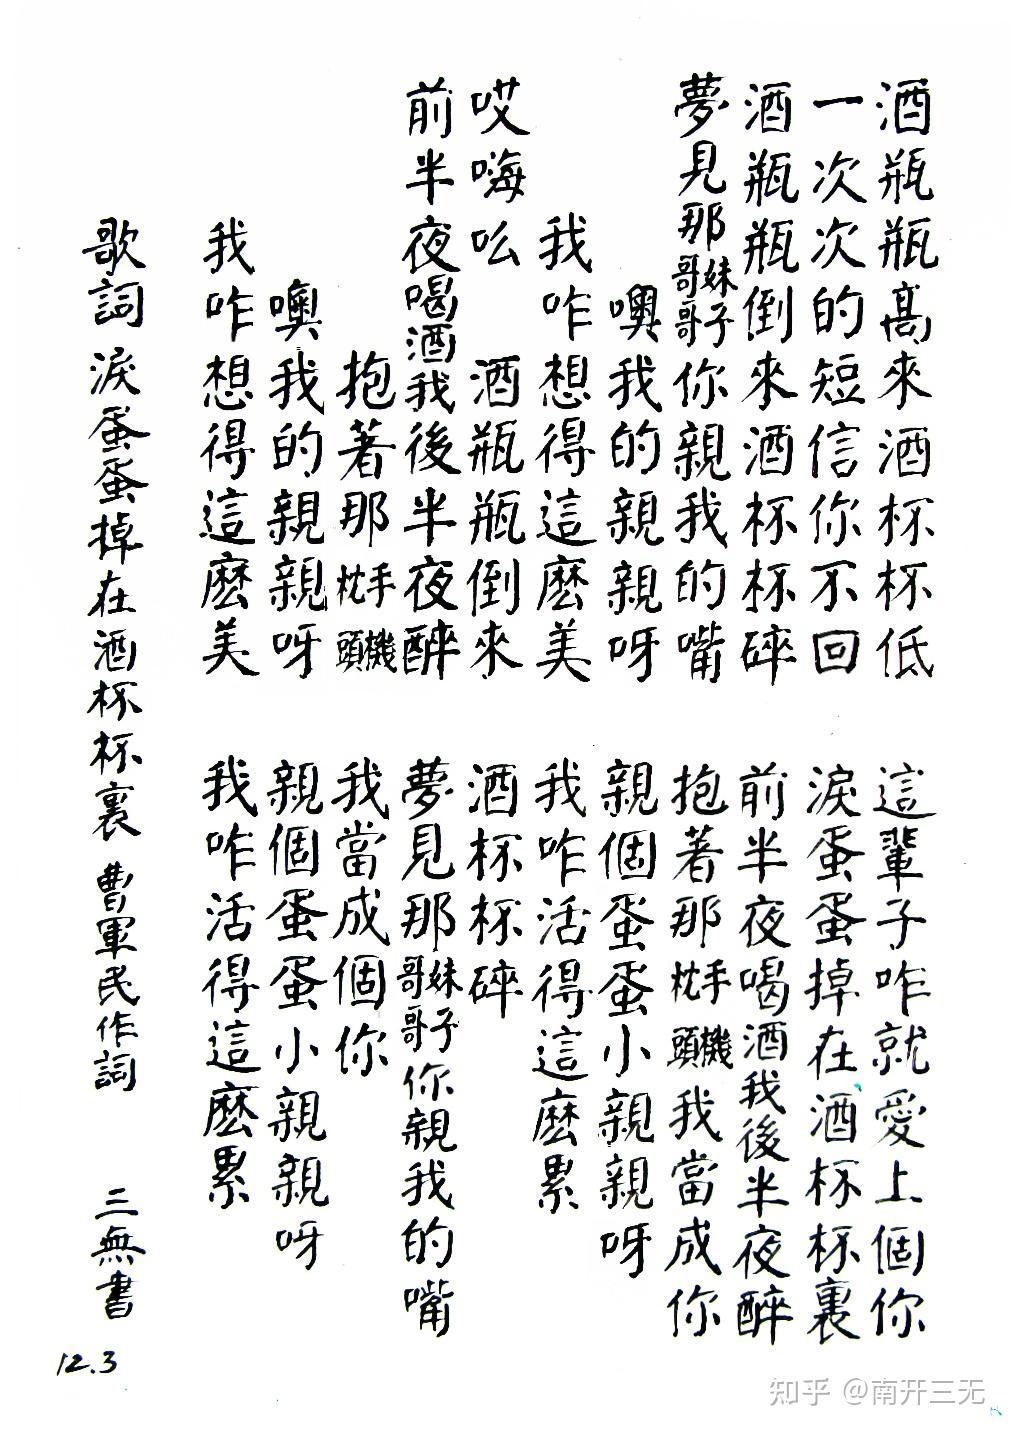 酒瓶瓶髙來酒杯杯低 這輩子咋就愛上個你
一次次的短信你不回 淚蛋蛋掉在酒杯杯裏
酒瓶瓶倒來酒杯杯碎 前半夜喝酒我後半夜醉
夢見那妹子哥哥你親我的嘴 抱著那手機枕頭我當成你
噢我的親親呀 親個蛋蛋小親親呀
我咋想得這麼美 我咋活得這麼累
哎嗨吆 酒瓶瓶倒來 酒杯杯碎
前半夜喝酒我後半夜醉 夢見那妹子哥哥你親我的嘴
抱著那手機枕頭 我當成個你
噢我的親親呀 親個蛋蛋小親親呀
我咋想得這麼美 我咋活得這麼累
歌詞 淚蛋蛋掉在酒杯杯裏 曹軍民作詞 三無書
12.3
知乎 @南开三无